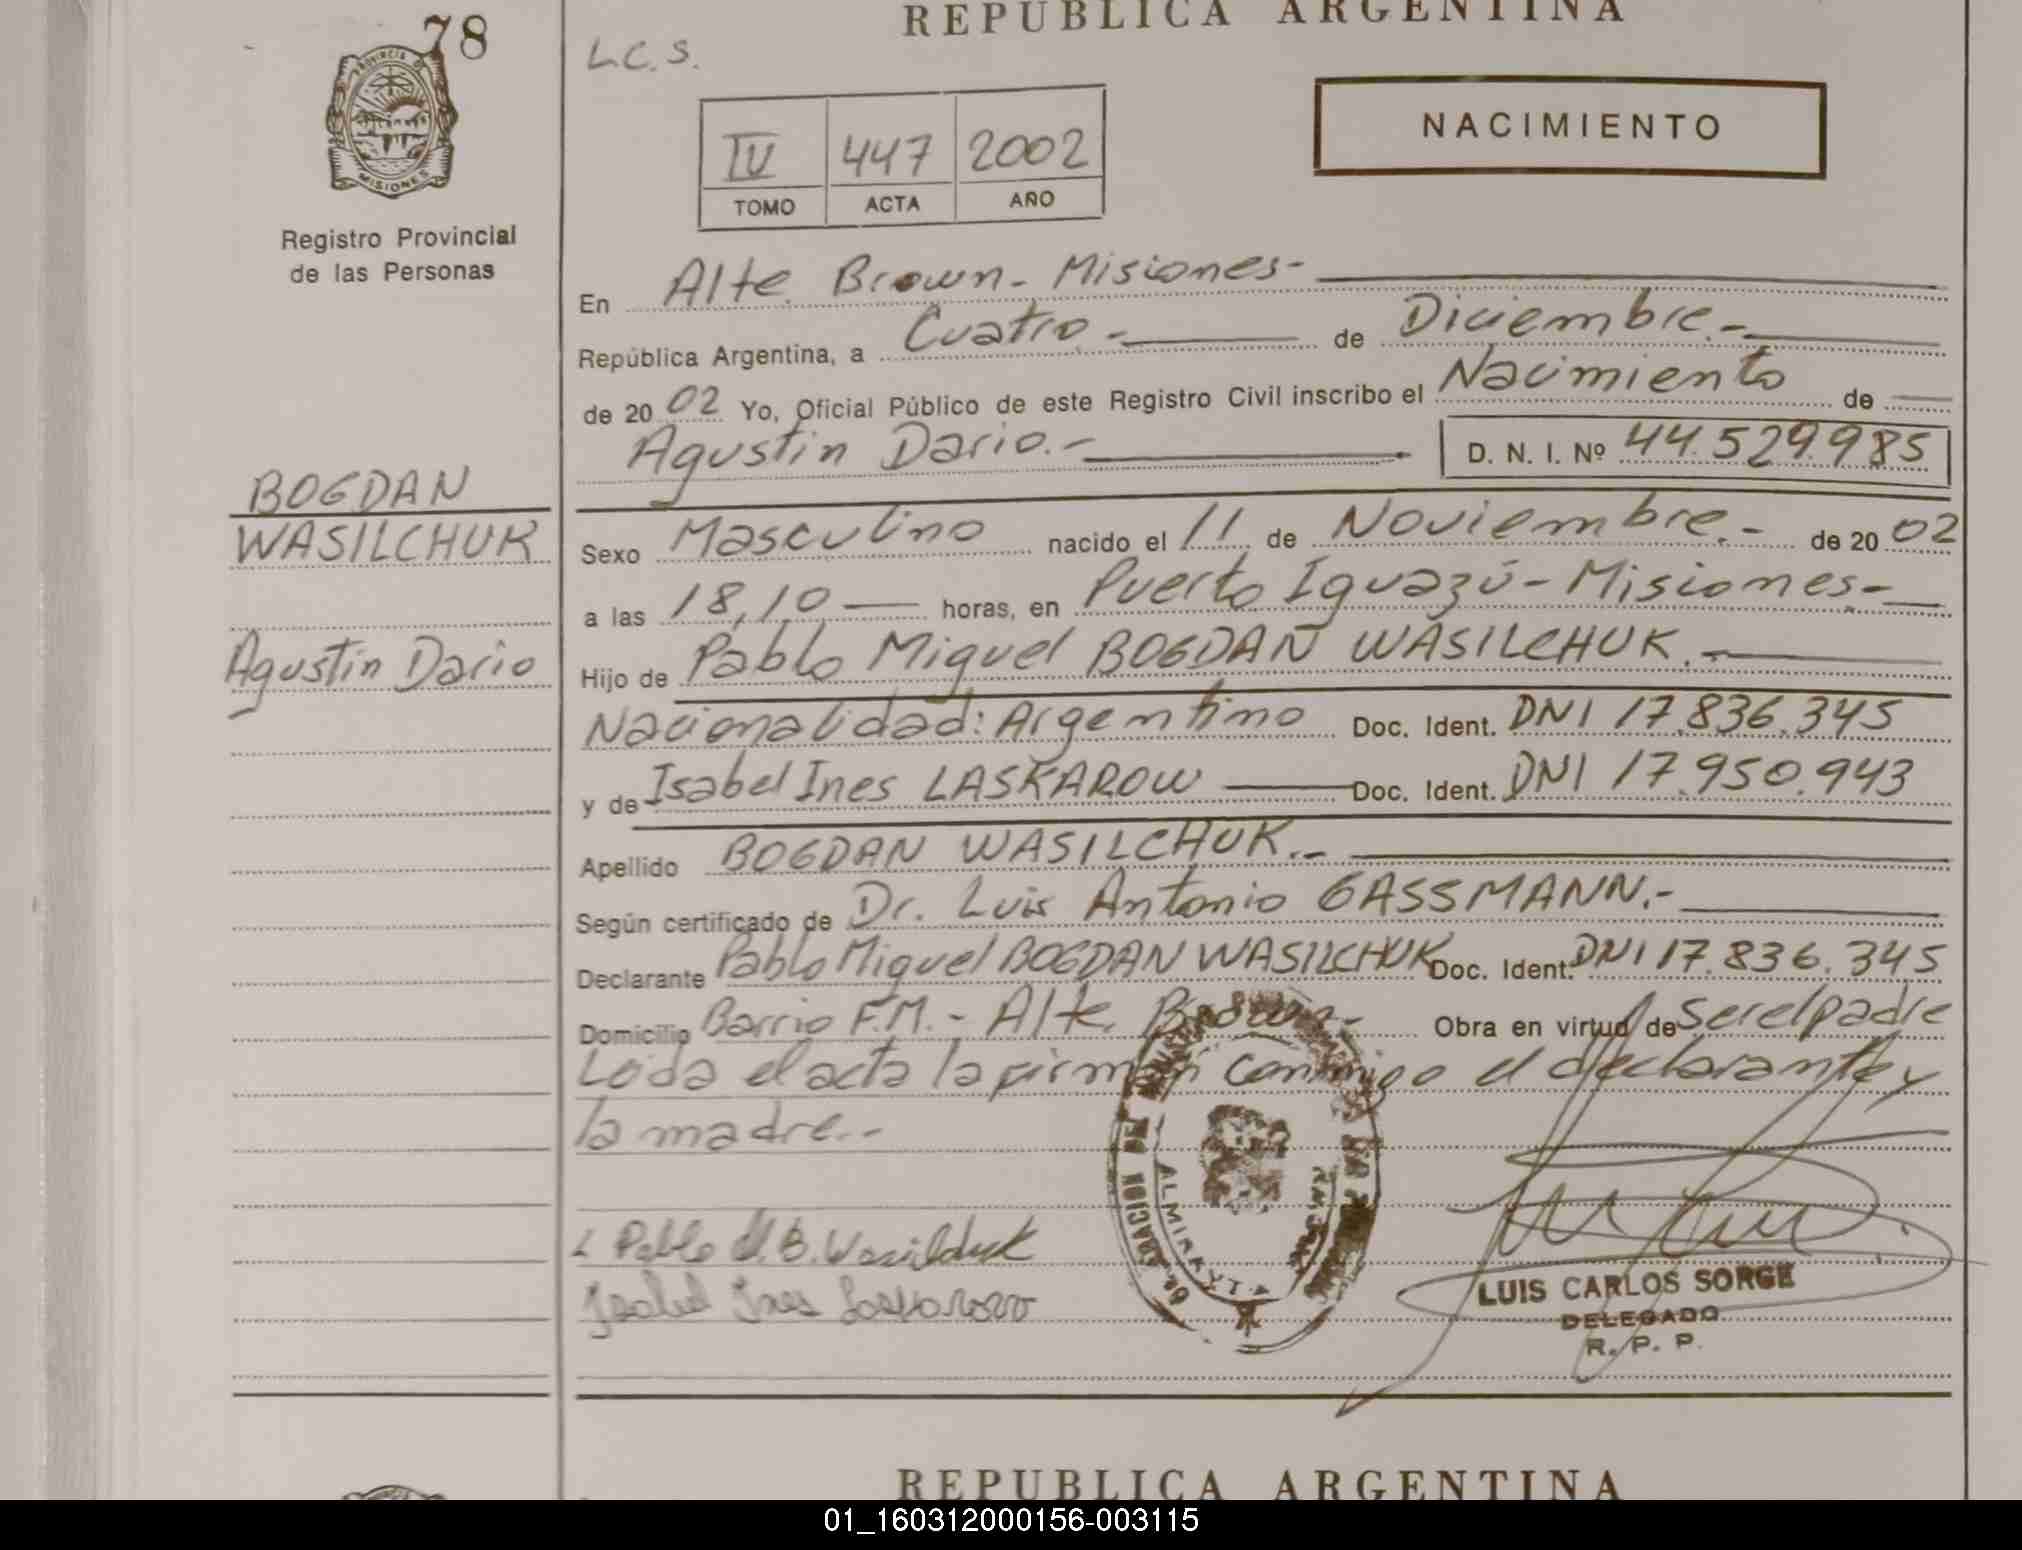 78
PROVINCIA DE
MISIONES
Registro Provincial
de las Personas
BOGDAN
WASILCHUK
Agustin Dario
REPUBLICA ARGENTINA
L.C.S.
IV 447 2002
TOMO ACTA AÑO
NACIMIENTO
En Alte. Brown - Misiones -
República Argentina, a Cuatro.- de Diciembre.-
de 2002 Yo, Oficial Público de este Registro Civil inscribo el Nacimiento de
Agustin Dario.- D. N. I. Nº 44.529.985
Sexo Masculino nacido el 11 de Noviembre.- de 2002
a las 18,10 horas, en Puerto Iguazú - Misiones.-
Hijo de Pablo Miguel BOGDAN WASILCHUK.-
Nacionalidad: Argentino Doc. Ident. DNI 17.836.345
y de Isabel Ines LASKAROW Doc. Ident. DNI 17.950.943
Apellido BOGDAN WASILCHUK.-
Según certificado de Dr. Luis Antonio GASSMANN.-
Declarante Pablo Miguel BOGDAN WASILCHUK Doc. Ident. DNI 17.836.345
Domicilio Barrio F.M. - Alte. Brown - Obra en virtud de ser el padre
Loída el acta la firman conmigo el declarante y
la madre.-
Pablo M. B. Wasilchuk
Isabel Ines Laskarow
LUIS CARLOS SORGE
DELEGADO
R. P. P.
REPUBLICA ARGENTINA
01_160312000156-003115